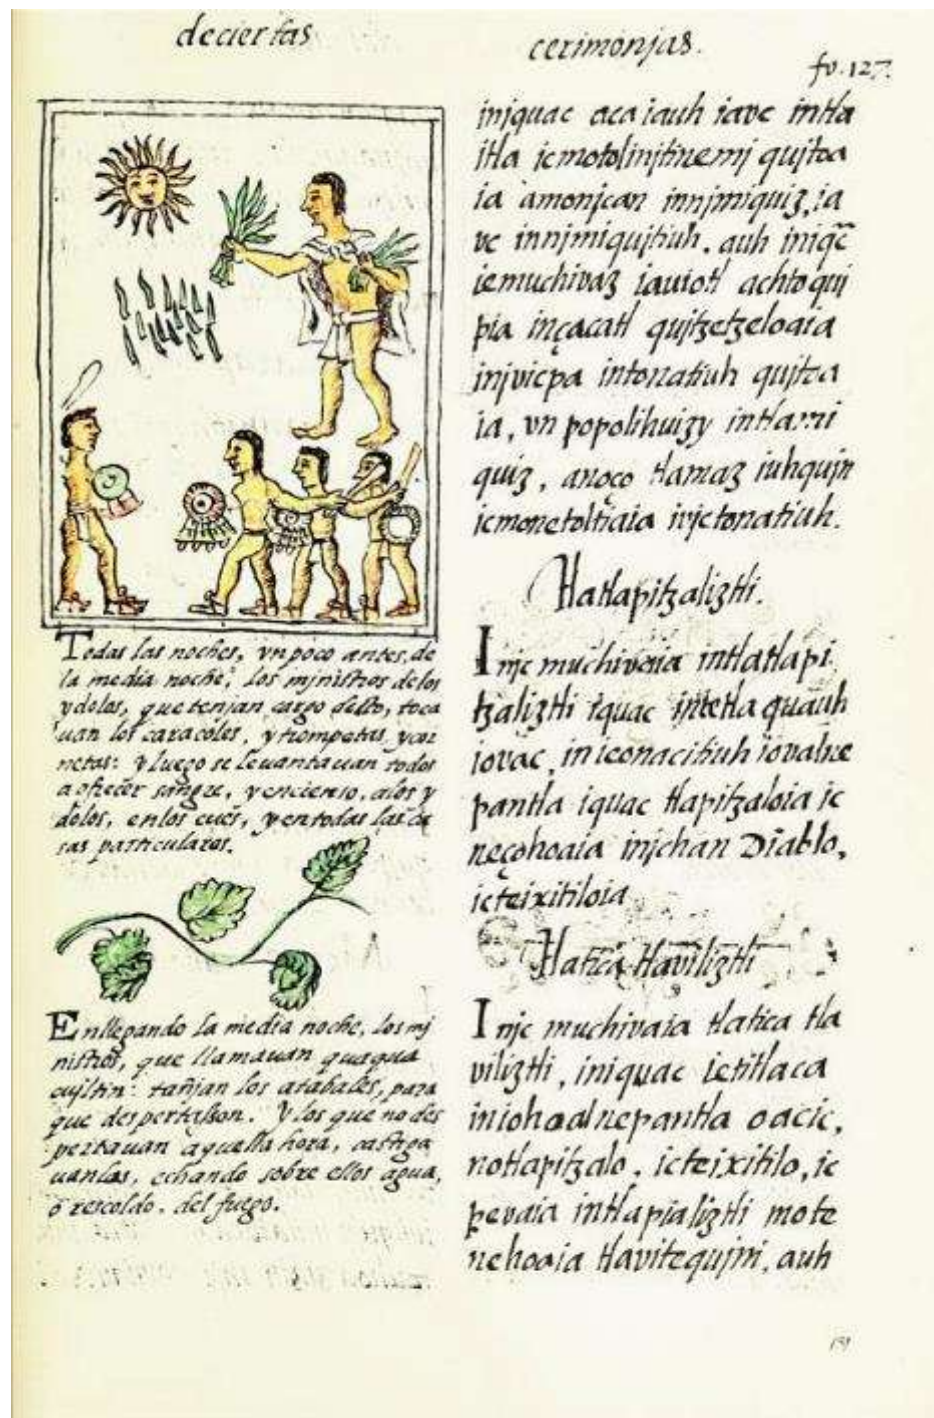 deciertas
cerimonjas.
fo.127.
Todas las noches, vn poco antes, de
la media noche, los mjnistros delos
ydolos, que tenjan cargo desto, toca
uan los caracoles, y trompetas, y cor
netas: y luego se leuantauan todos
a ofrecer sangre, y encienso, alos y
dolos, enlos cues, y en todas las ca
sas particulares.
Enllegando la media noche, los mj
nistros, que llamauan quaqua
cujltin: tañjan los atabales, para
que despertassen. Y los que no des
pertauan aquella hora, castiga
uanlos, echando sobre ellos agua,
o rescoldo. del fuego.
injquac aca iauh iavc intla
itla ic motolinjtinemj qujtoa
ia amonjcan innjmiquiz, ia
vc innjmiqujtiuh. auh iniqc̃
iemuchivaz iauiotl achto quj
pia inçacatl qujtzetzeloaia
injvicpa intonatiuh qujtoa
ia, vn popolihuizy intlami
quiz, anoço tlamaz iuhqujn
icmonetoltiaia ivictonatiuh.
Tlatlapitzaliztli.
Injc muchivaia intlatlapi
tzaliztli iquac intetla quãuh
iovac, in ieonacitiuh iovalne
pantla iquac tlapitzaloia ic
neçohoaia injchan Diablo,
icteixitiloia
Tlatica tlaviliztli
Injc muchivaia tlatica tla
viliztli, iniquac ietitlaca
iniohoalnepantla oacic,
notlapitzalo, icteixitilo, ic
pevaia intlapializtli mote
nehoaia tlavitequjnj, auh